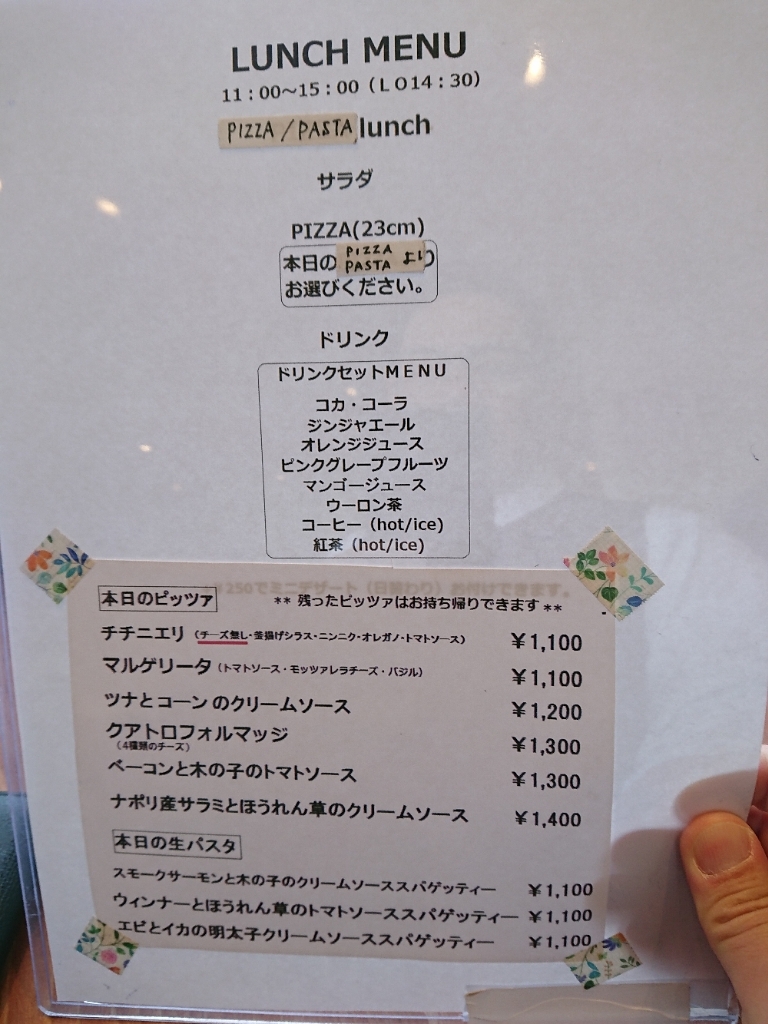 LUNCH MENU
11：00～15：00（ＬＯ14：30）
PIZZA/PASTA lunch
サラダ
PIZZA(23cm)
本日のPIZZA PASTA より
お選びください。
ドリンク
ドリンクセットＭＥＮＵ
コカ・コーラ
ジンジャエール
オレンジジュース
ピンクグレープフルーツ
マンゴージュース
ウーロン茶
コーヒー（hot/ice)
紅茶（hot/ice)
250でミニデザート（日替わり）お付けできます。
本日のピッツァ ** 残ったピッツァはお持ち帰りできます **
チチニエリ（チーズ無し・釜揚げシラス・ニンニク・オレガノ・トマトソース） ￥1,100
マルゲリータ（トマトソース・モッツァレラチーズ・バジル） ￥1,100
ツナとコーンのクリームソース ￥1,200
クアトロフォルマッジ ￥1,300
（4種類のチーズ）
ベーコンと木の子のトマトソース ￥1,300
ナポリ産サラミとほうれん草のクリームソース ￥1,400
本日の生パスタ
スモークサーモンと木の子のクリームソーススパゲッティー ￥1,100
ウィンナーとほうれん草のトマトソーススパゲッティー ￥1,100
エビとイカの明太子クリームソーススパゲッティー ￥1,100